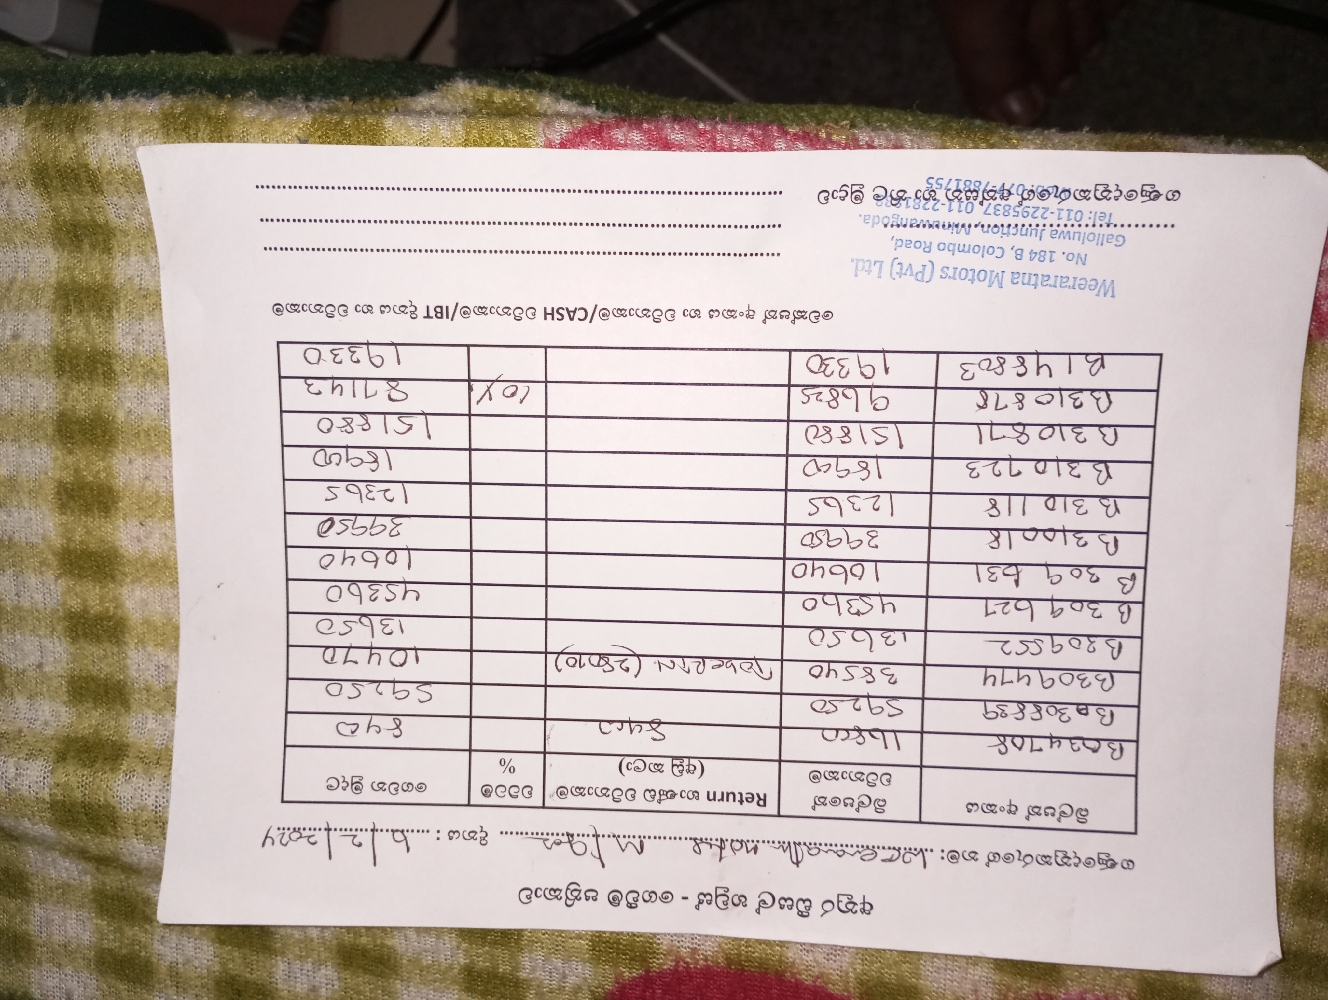 අනුර ටියුල් හවුස් - ගෙවීම් පත්‍රිකාව
ගනුදෙනුකරුගේ නම: Weerarathna Motors M/goda දිනය : 6/2/2024
බිල්පත් අංකය බිල්පතේ වටිනාකම Return භාණ්ඩ වටිනාකම (අඩු කළා) වට්ටම් % ගෙවන මුදල
B034708 16800 8400 8400
B308839 59250 59250
B309474 38540 (28070) 10470
B309552 13650 13650
B309627 45360 45360
B309631 10640 10640
B310018 39950 39950
B310118 12365 12365
B310723 18900 18900
B310871 151880 151880
B310878 96825 10% 87143
B148803 19330 19330
චෙක්පත් අංකය හා වටිනාකම/CASH වටිනාකම/IBT දිනය හා වටිනාකම
Weeraratna Motors (Pvt) Ltd.
No. 184 B, Colombo Road,
Galloluwa Junction, Minuwangoda.
Tel: 011-2295837, 011-2281838
077-7881755
ගනුදෙනුකරුගේ අත්සන හා නිල මුද්‍රාව